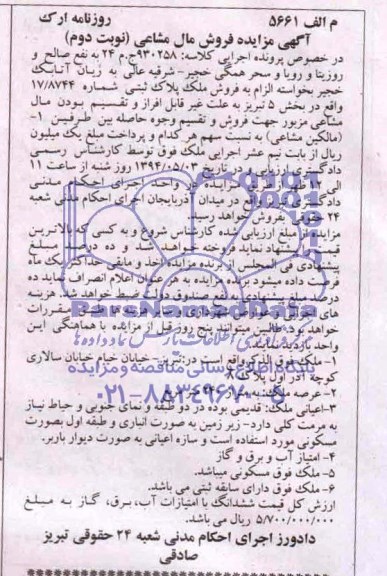 م الف ۵۶۶۱ روزنامه ارک
آگهی مزایده فروش مال مشاعی (نوبت دوم)
در خصوص پرونده اجرایی کلاسه: ۹۳۰۲۵۸ج.م ۲۴ به نفع صالح و
روزیتا و رویا و سحر همگی خجیر- شرفیه عالی به زیان آتابک
خجیر بخواسته الزام به فروش ملک پلاک ثبتی شماره ۱۷/۸۷۴۴
واقع در بخش ۵ تبریز به علت غیر قابل افراز و تقسیم بودن مال
مشاعی مزبور جهت فروش و تقسیم وجوه حاصله بین طرفین ۱-
(مالکین مشاعی) به نسبت سهم هر کدام و پرداخت مبلغ یک میلیون
ریال از بابت نیم عشر اجرایی ملک فوق توسط کارشناس رسمی
دادگستری ارزیابی و در تاریخ ۱۳۹۴/۰۵/۰۳ روز شنبه از ساعت ۱۱
الی ۱۲ ظهر از طریق مزایده در واحد اجرای احکام مدنی
دادگستری تبریز واقع در میدان آذربایجان اجرای احکام مدنی شعبه
۲۴ حقوقی بفروش خواهد رسید
مزایده از مبلغ ارزیابی شده کارشناس شروع و به کسی که بالاترین
قیمت پیشنهاد نماید فروخته خواهد شد و ده درصد مبلغ
پیشنهادی فی المجلس از برنده مزایده اخذ و مابقی حداکثر یک ماه
فرصت داده میشود برنده مزایده به هر عنوان اعلام انصراف نماید ده
درصد مبلغ پیشنهادی به نفع صندوق دولت ضبط خواهد شد. هزینه
های مقررات
خواهد بود. طالبین میتوانند پنج روز قبل از مزایده با هماهنگی این
واحد بازدید نمایند.
۱- ملک فوق الذکر واقع است در: تبریز- خیابان خیام خیابان سالاری
کوچه آذر اول پلاک
۲- عرصه ملک:
۳-اعیانی ملک: قدیمی بوده در دو طبقه و نمای جنوبی و حیاط نیاز
به مرمت کلی دارد- زیر زمین به صورت انباری و طبقه اول بصورت
مسکونی مورد استفاده است و سازه اعیانی به صورت دیوار باربر.
۴- امتیاز آب و برق و گاز
۵- ملک فوق مسکونی میباشد.
۶- ملک فوق دارای سابقه ثبتی می باشد.
ارزش کل قیمت ششدانگ با امتیازات آب، برق، گاز به مبلغ
۵/۷۰۰/۰۰۰/۰۰۰ ریال می باشد.
دادورز اجرای احکام مدنی شعبه ۲۴ حقوقی تبریز
صادقی
ParsNamadData
پایگاه اطلاع رسانی مناقصه و مزایده
۰۲۱-۸۸۳۴۹۶۷۰-۵